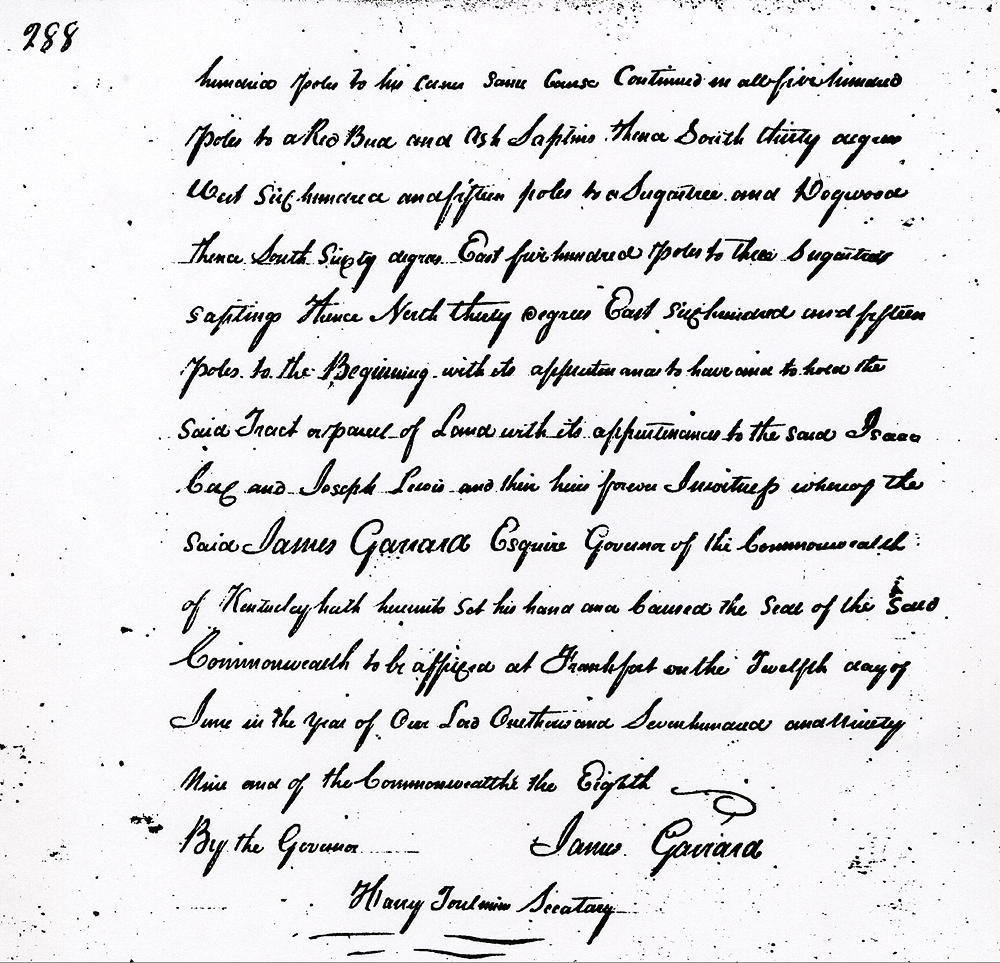 288
hundred poles to his corner same Course Continued in all five hundred
Poles to a Red Bud and Ash Saplins thence South thirty degrees
West Six hundred and fifteen poles to a Sugartree and Dogwood
thence South Sixty degrees East five hundred Poles to three Sugartree
saplings Thence North thirty degrees East Six hundred and fifteen
Poles to the Beginning with its appurtenances to have and to hold the
said Tract or parcel of Land with its appurtinances to the said Isaac
Cox and Joseph Lewis and their heirs forever In witness whereof the
said James Garrard Esquire Governor of the Commonwealth
of Kentucky hath hereunto set his hand and Caused the Seal of the Said
Commonwealth to be affixed at Frankfort on the Twelfth day of
June in the Year of Our Lord One thousand Seven hundred and Ninety
Nine and of the Commonwealth the Eighth
By the Governor James Garrard
Harry Toulmin Secatary